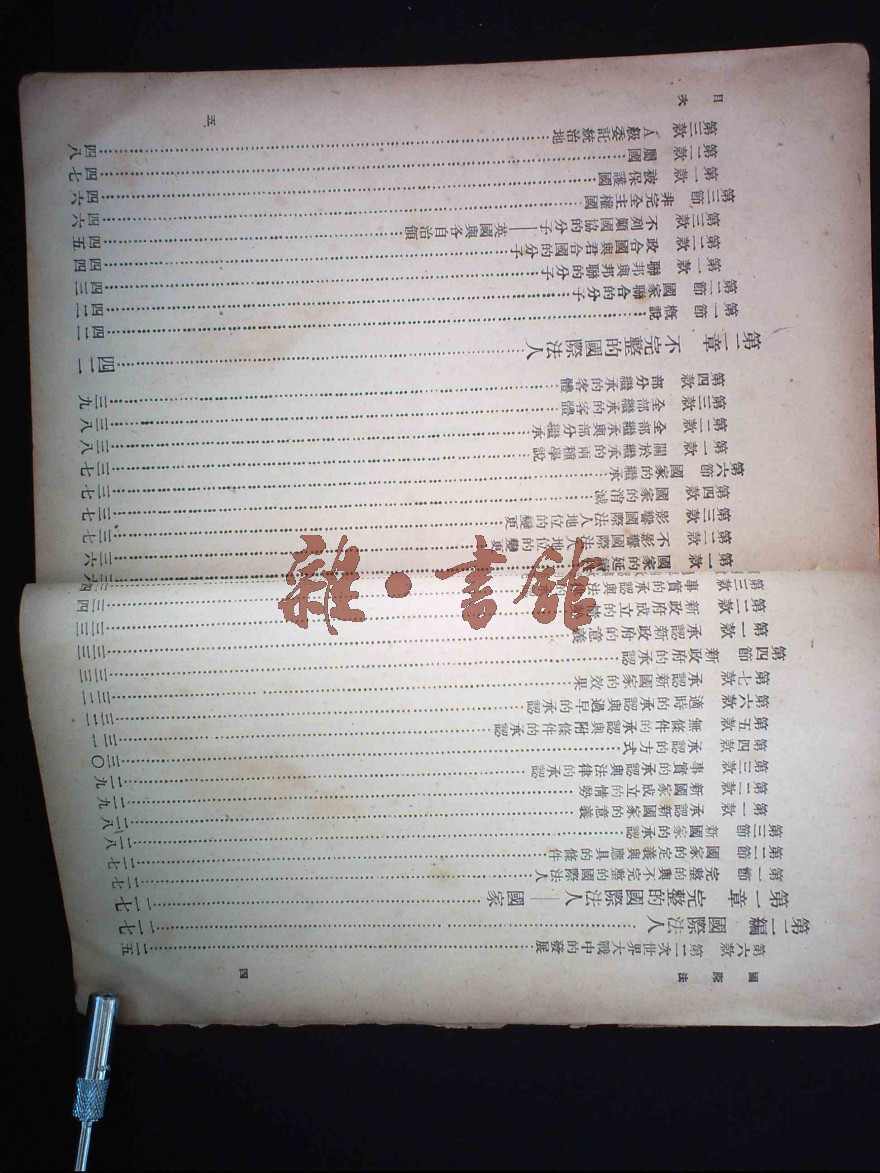 國際法
四
第六款 第二次世界大戰中的發展 二五
第二編 國際法人 二七
第一章 完整的國際法人——國家 二七
第一節 完整的與不完整的國際法人 二七
第二節 國家的定義與應具的條件 二七
第三節 新國家的承認 二八
第一款 承認新國家的意義 二八
第二款 新國家成立的情勢 二九
第三款 事實的承認與法律的承認 二九
第四款 承認的方式 三〇
第五款 無條件的承認與附條件的承認 三一
第六款 適時的承認與過早的承認 三二
第七款 承認新國家的效果 三三
第四節 新政府的承認 三三
第一款 承認新政府的意義 三三
第二款 新政府成立的 三四
第三款 事實的承認與法
目次
五
第一款 國家的延續 三六
第二款 不影響國際法人地位的變更 三七
第三款 影響國際法人地位的變更 三七
第四款 國家的消滅 三七
第六節 國家的繼承 三七
第一款 關於繼承的兩種學說 三八
第二款 全部繼承與部分繼承 三八
第三款 全部繼承的客體 三九
第四款 部分繼承的客體
第二章 不完整的國際法人 四一
第一節 概說 四二
第二節 國家聯合的分子 四三
第一款 聯邦與邦聯的分子 四四
第二款 政合國與君合國的分子 四五
第三款 不列顛國協的分子——英國與各自治領 四六
第三節 非完全主權國 四六
第一款 被保護國 四七
第二款 屬國 四八
第三款 A級委託統治地
雜·書館